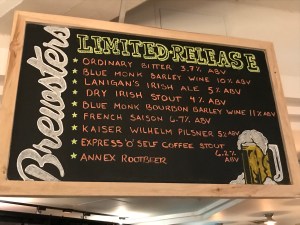 Brewsters
LIMITED·RELEASE
ORDINARY BITTER 3.7% ABV
BLUE MONK BARLEY WINE 10% ABV
LANIGAN'S IRISH ALE 5% ABV
DRY IRISH STOUT 4% ABV
BLUE MONK BOURBON BARLEY WINE 11% ABV
FRENCH SAISON 6.7% ABV
KAISER WILHELM PILSNER 5% ABV
EXPRESS 'O' SELF COFFEE STOUT
6.2% ABV
ANNEX ROOTBEER